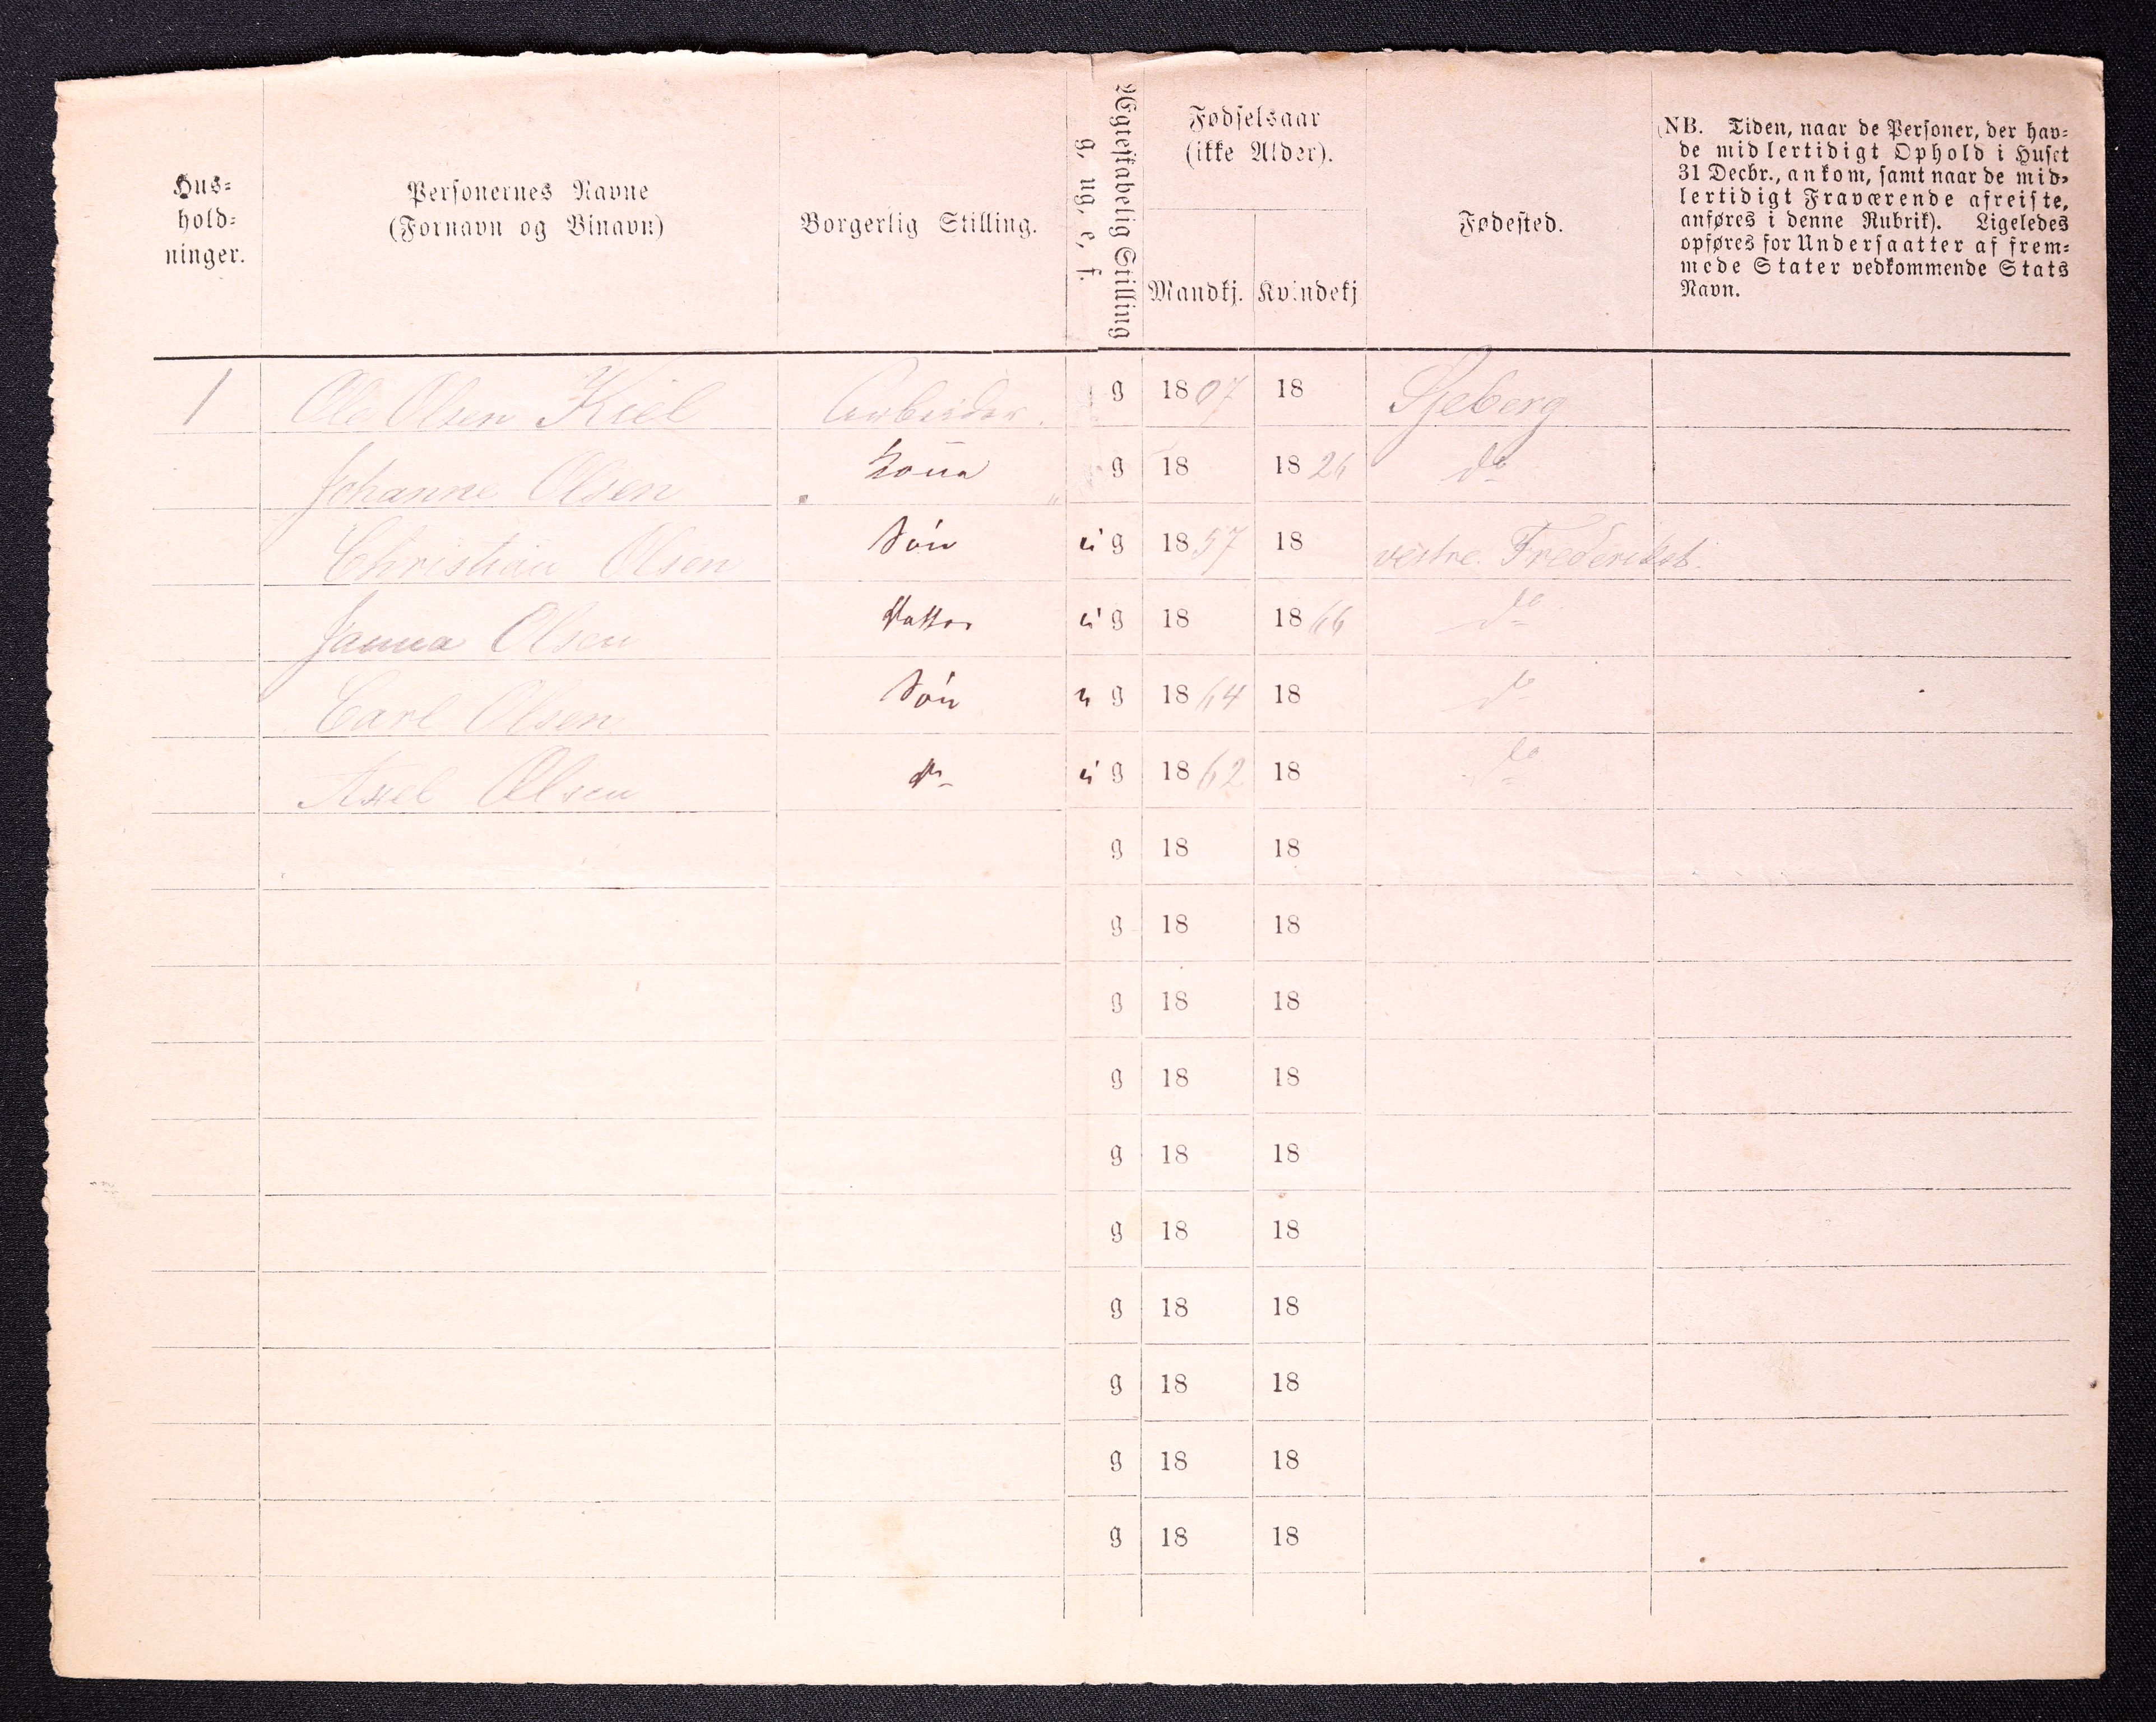 Hus-
hold-
ninger.
Personernes Navne
(Fornavn og Binavn)
Borgerlig Stilling.
Ægteskabelig Stilling
g, ug, e, f.
Fødselsaar
(ikke Alder).
Mandkj. Kvindekj
Fødested.
(NB. Tiden, naar de Personer, der hav-
de midlertidigt Ophold i Huset
31 Decbr., ankom, samt naar de mid-
lertidigt Fraværende afreiste,
anføres i denne Rubrik). Ligeledes
opføres for Undersaatter af frem-
mede Stater vedkommende Stats
Navn.
1 Ole Olsen Kiel Arbeider. g 1807 18
Johanne Olsen Kona g 18 1826 do
Christian Olsen Søn ug 1857 18 vestre Frederikst.
Janna Olsen Datter ug 18 1866 do
Carl Olsen Søn ug 1864 18 do
Axel Olsen do ug 1862 18 do
g 18 18
g 18 18
g 18 18
g 18 18
g 18 18
g 18 18
g 18 18
g 18 18
g 18 18
g 18 18